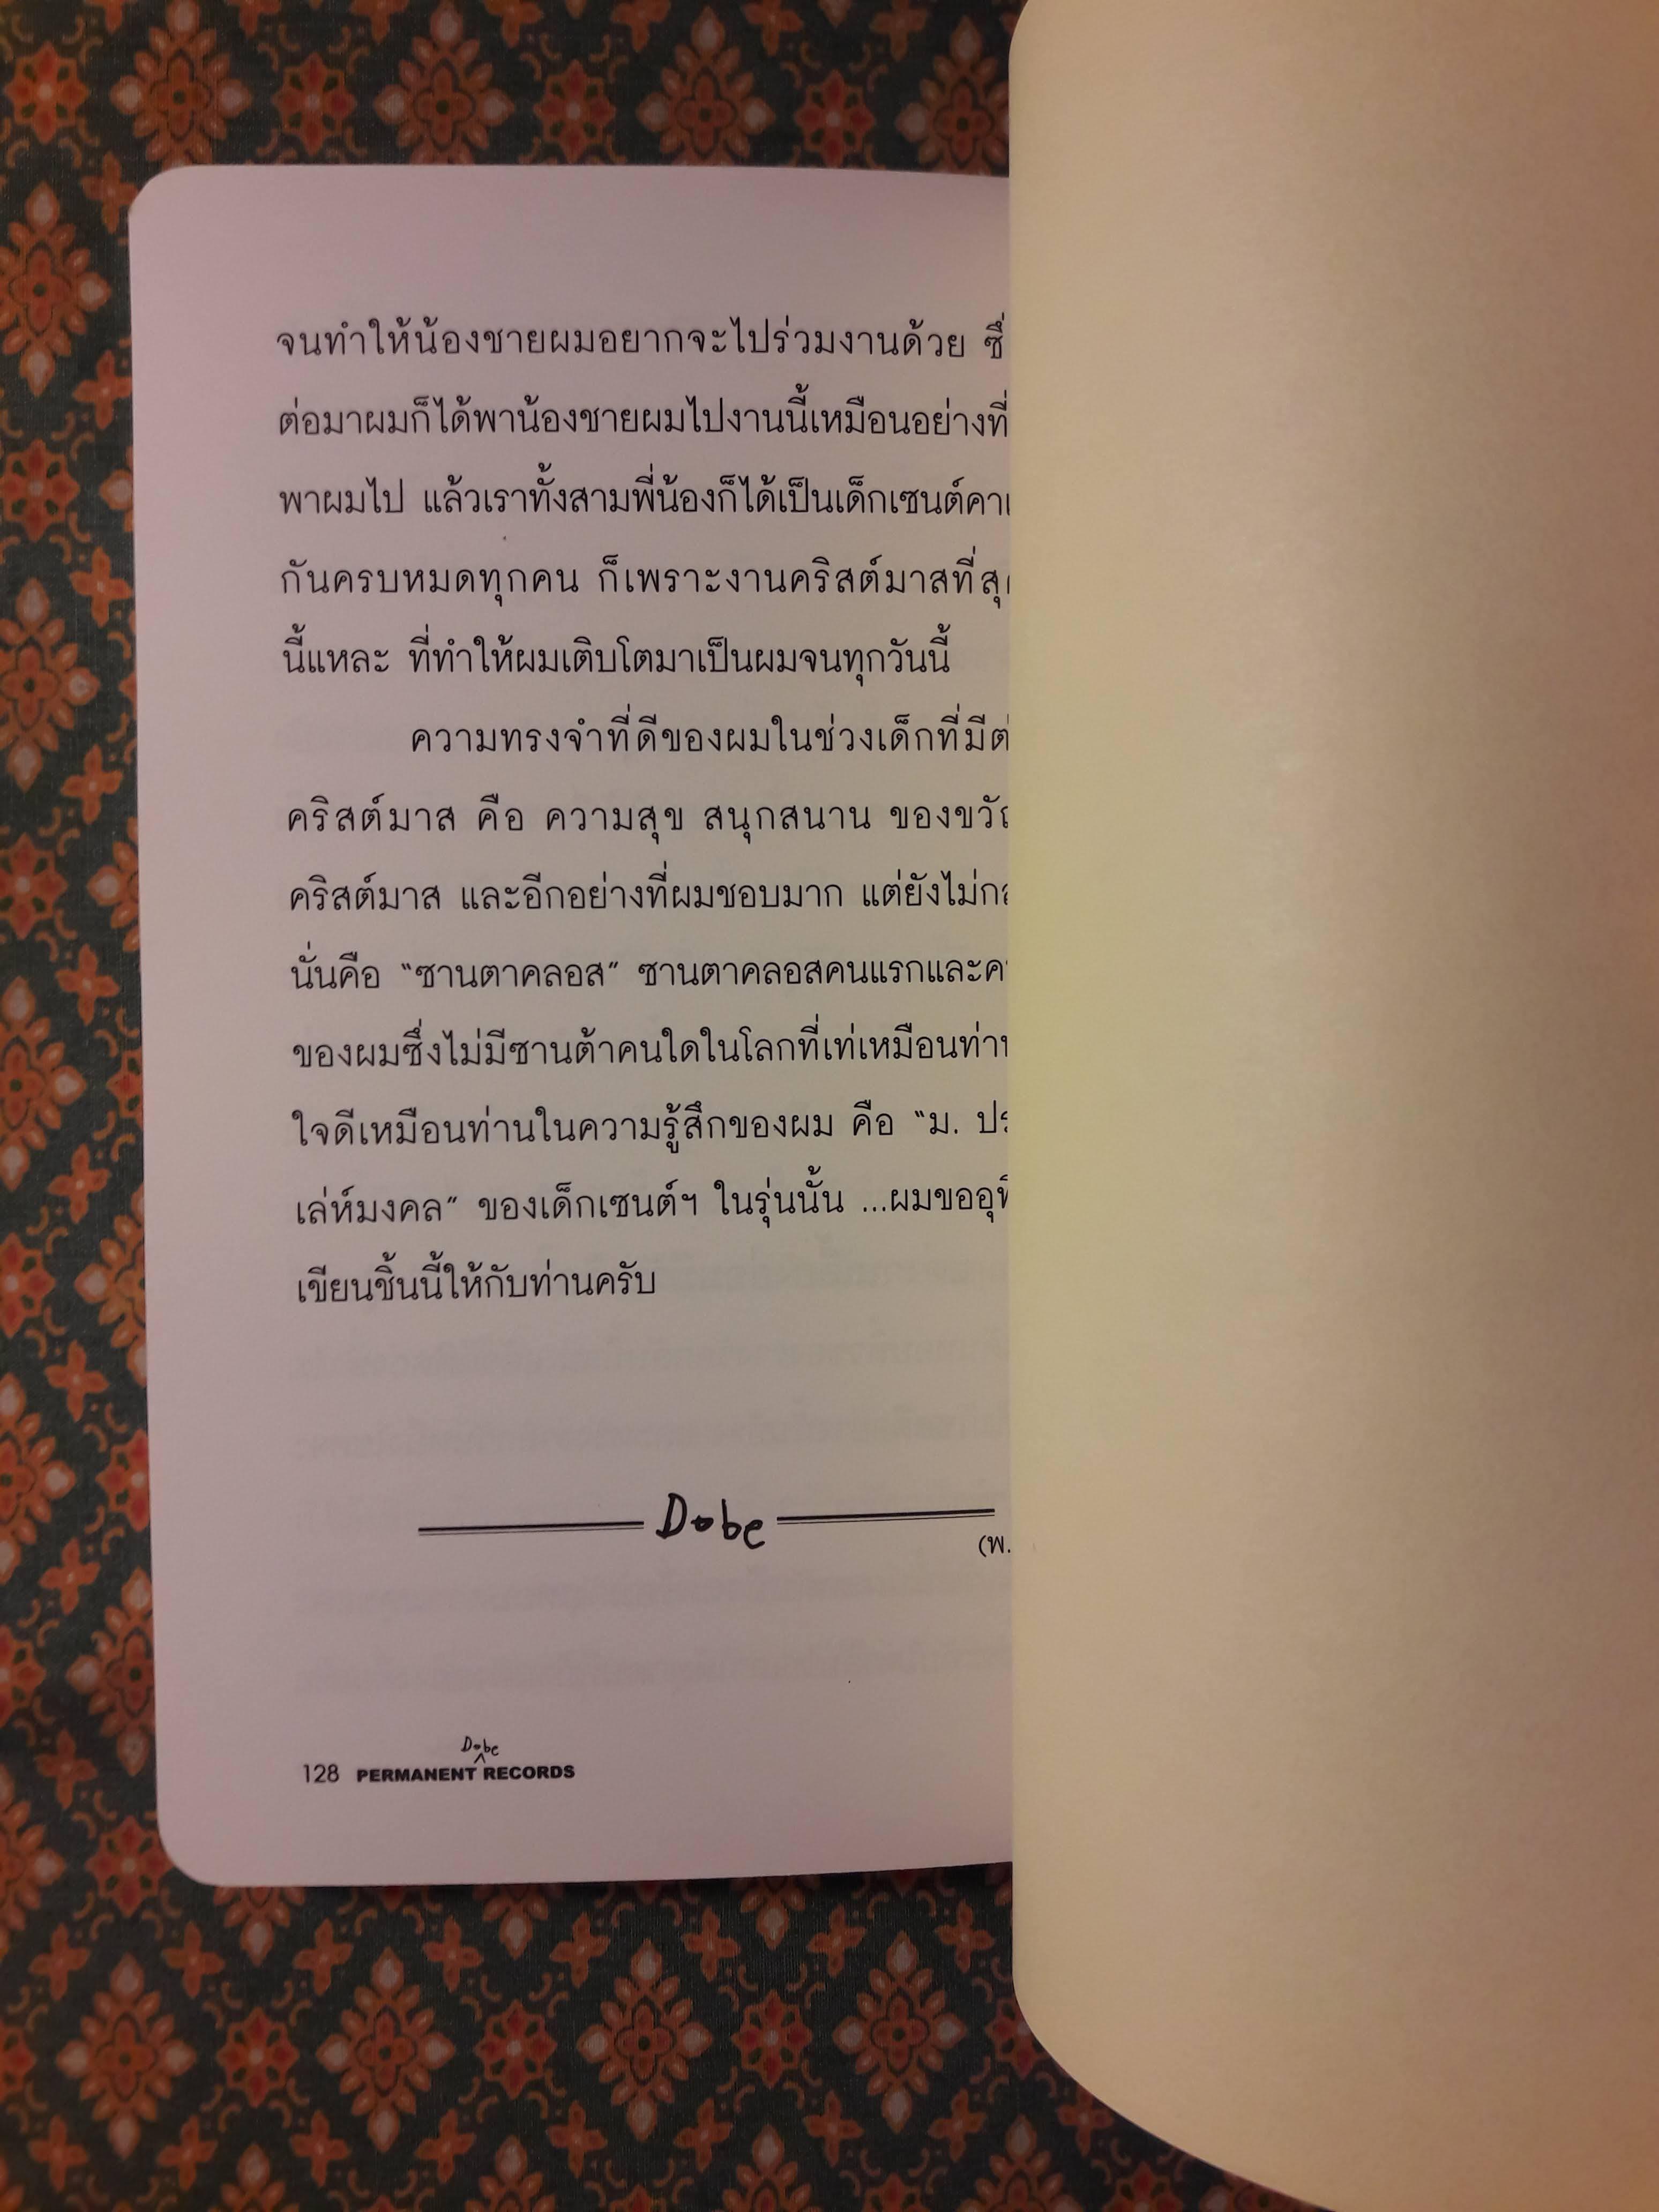 จนทำให้น้องชายผมอยากจะไปร่วมงานด้วย
ต่อมาผมก็ได้พาน้องชายผมไปงานนี้เหมือนอย่างที่
พาผมไป แล้วเราทั้งสามพี่น้องก็ได้เป็นเด็กเซนต์คา
กันครบหมดทุกคน ก็เพราะงานคริสต์มาสที่
นี้แหละ ที่ทำให้ผมเติบโตมาเป็นผมจนทุกวันนี้
ความทรงจำที่ดีของผมในช่วงเด็กที่มี
คริสต์มาส คือ ความสุข สนุกสนาน
คริสต์มาส และอีกอย่างที่ผมชอบมาก แต่ยังไม่
นั่นคือ “ซานตาคลอส” ซานตาคลอสคนแรกและ
ของผมซึ่งไม่มีซานต้าคนใดในโลกที่เท่เหมือน
ใจดีเหมือนท่านในความรู้สึกของผม คือ “ม.
เล่ห์มงคล” ของเด็กเซนต์ฯ ในรุ่นนั้น ...ผมขอ
เขียนชิ้นนี้ให้กับท่านครับ
Dobe
(พ.
Dobe
128 PERMANENT ^ RECORDS